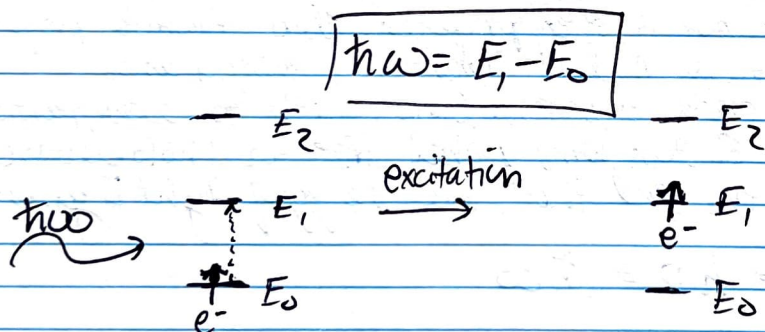 ħω = E₁ - E₀
E₂
E₂
excitation
ħω
E₁
E₁
e⁻
E₀
E₀
e⁻